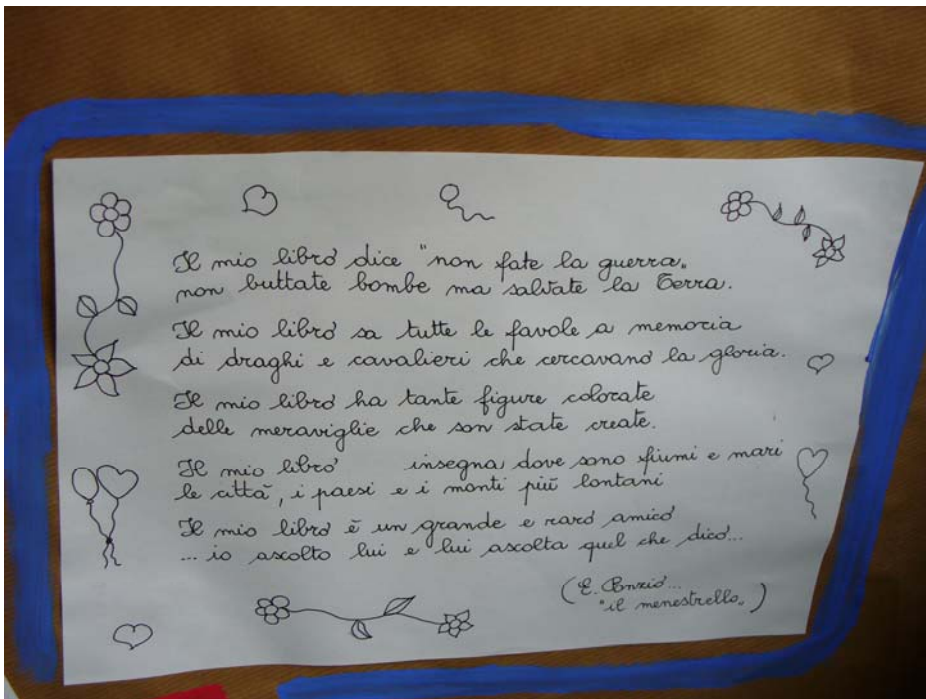 Il mio libro dice "non fate la guerra„
non buttate bombe ma salvate la Terra.
Il mio libro sa tutte le favole a memoria
di draghi e cavalieri che cercavano la gloria.
Il mio libro ha tante figure colorate
delle meraviglie che son state create.
Il mio libro insegna dove sono fiumi e mari
le città, i paesi e i monti più lontani
Il mio libro è un grande e raro amico
... io ascolto lui e lui ascolta quel che dico...
(E.
"il menestrello„)